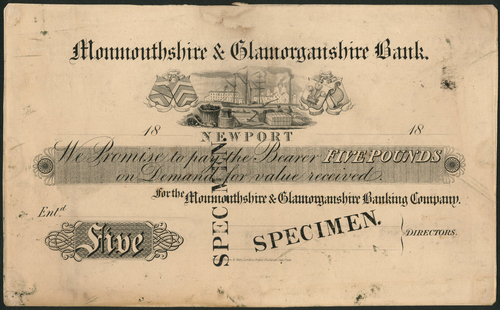 Monmouthshire & Glamorganshire Bank.
18 18
NEWPORT
We Promise to pay the Bearer FIVE POUNDS
on Demand for value received.
For the Monmouthshire & Glamorganshire Banking Company.
Entd
SPECIMEN
SPECIMEN.
DIRECTORS.
Five